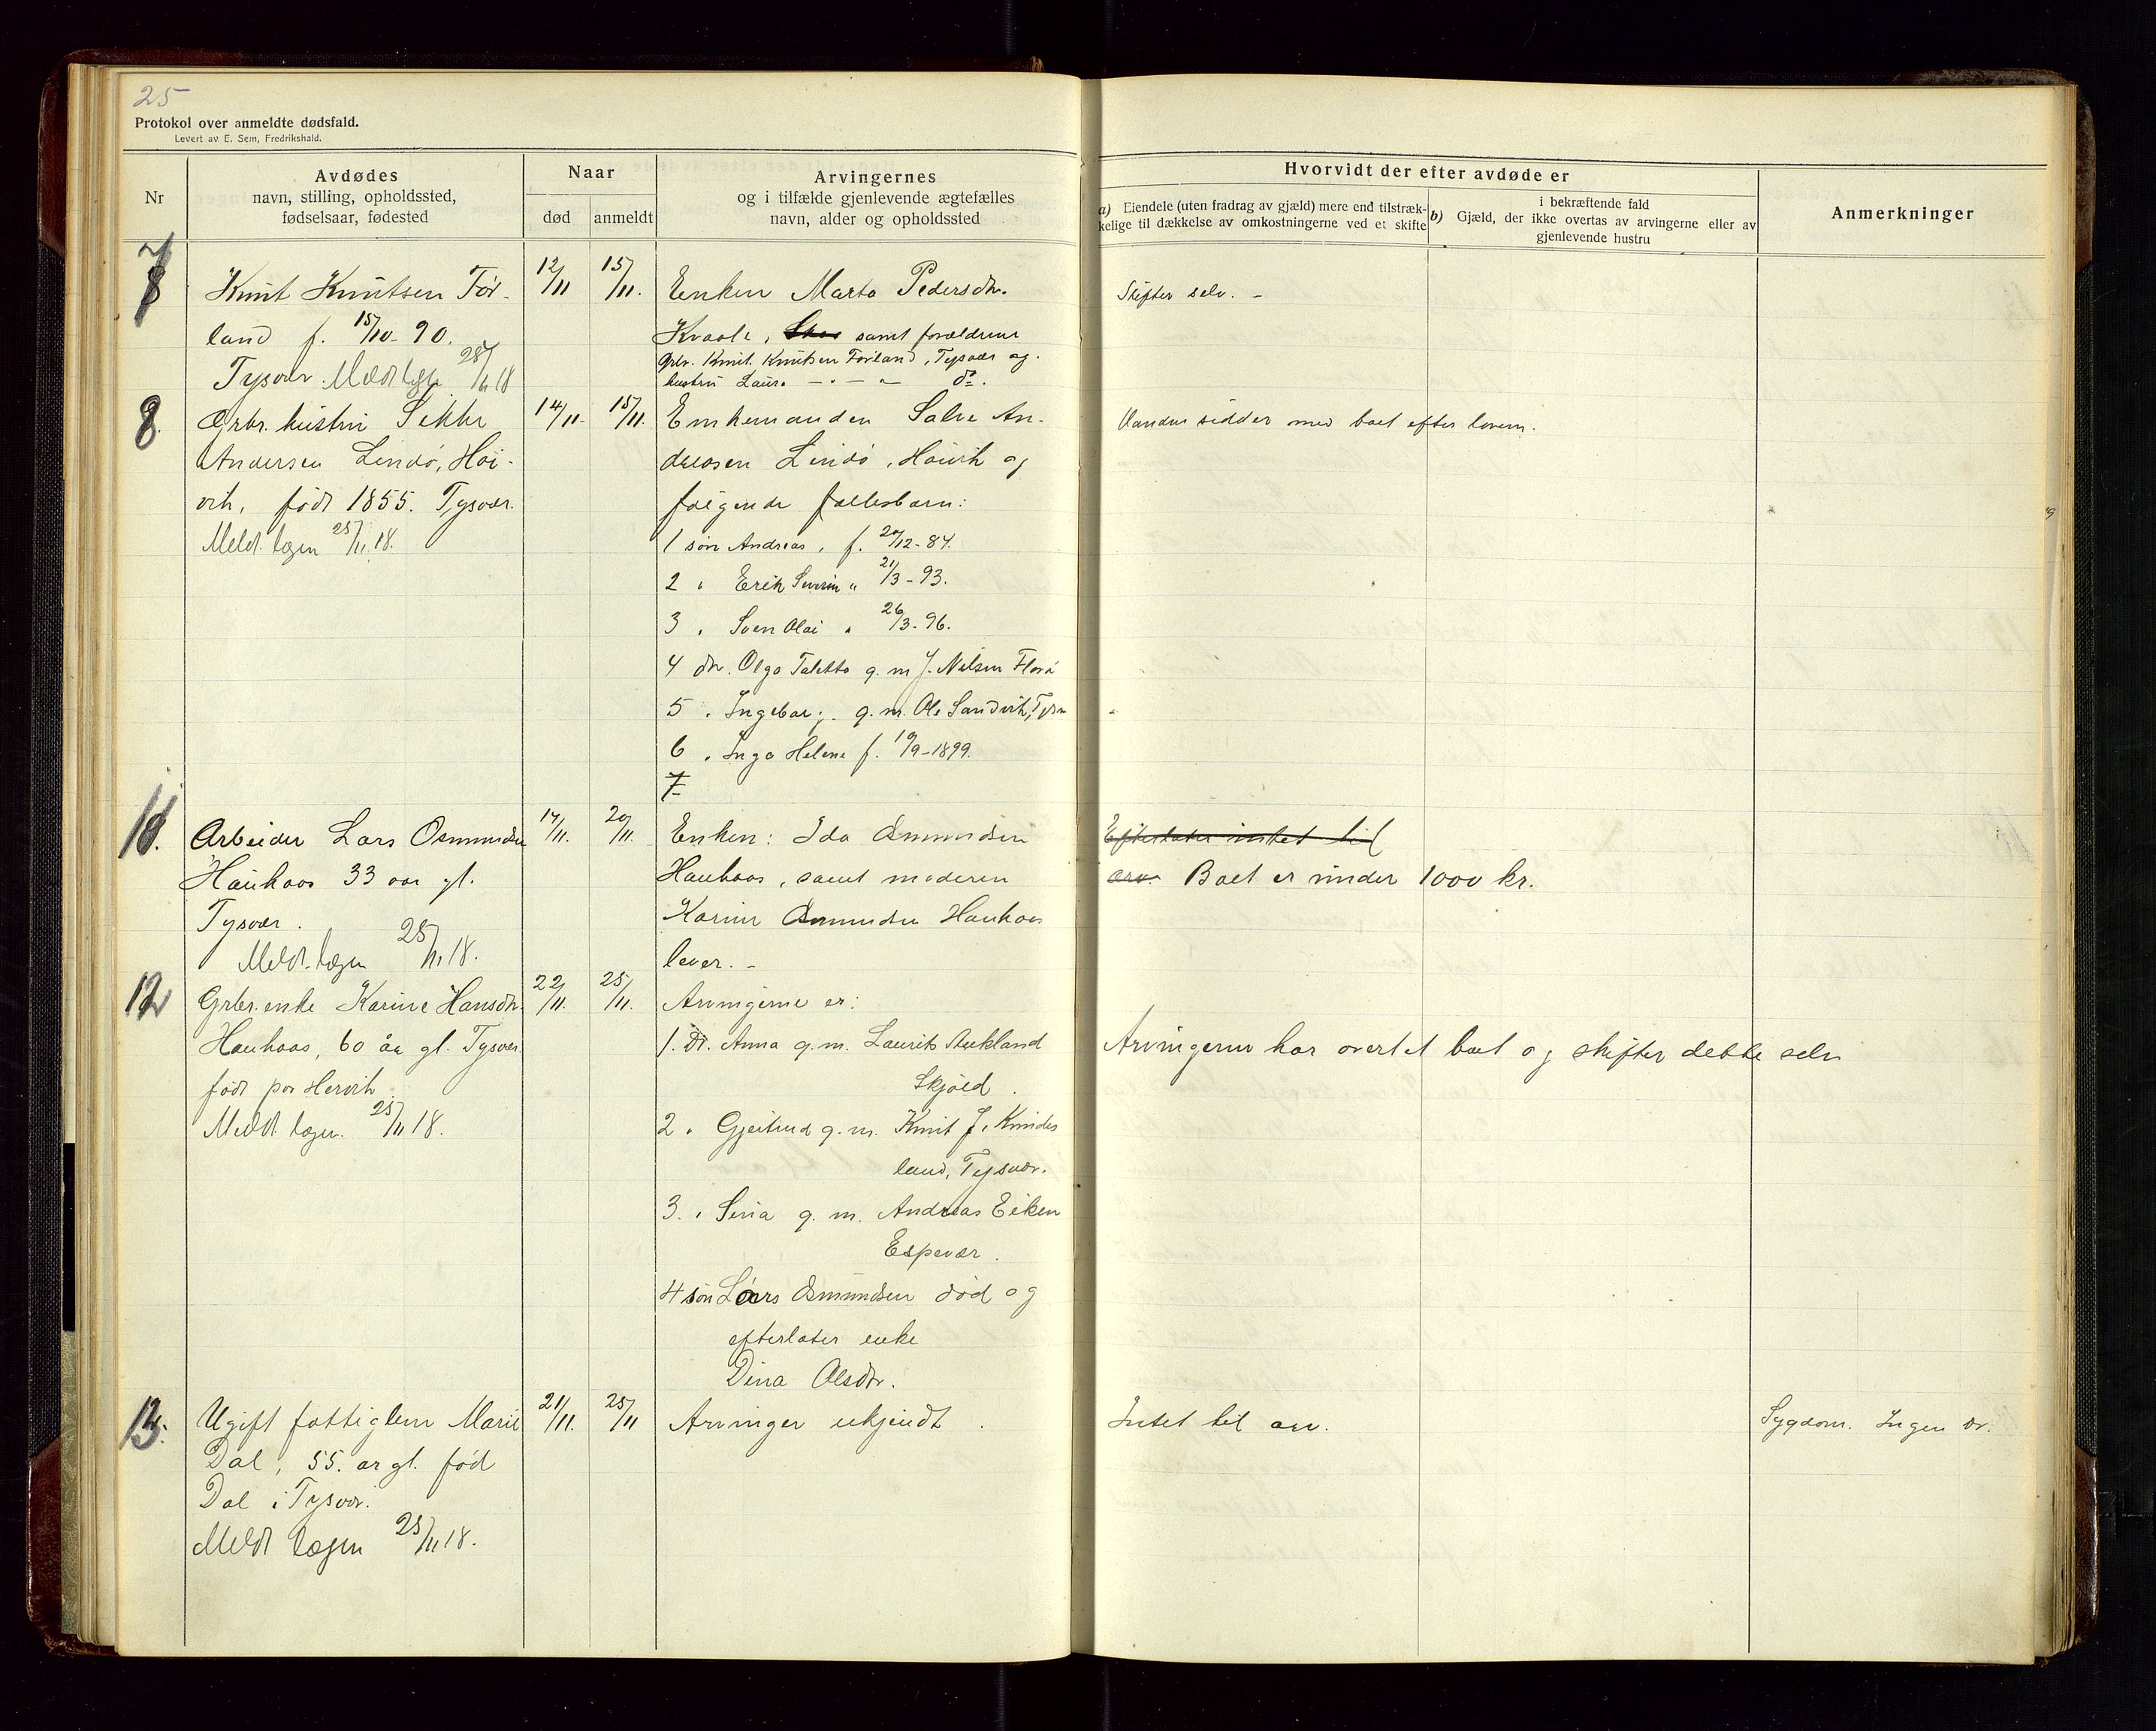 25
Protokol over anmeldte dødsfald.
Levert av E. Sem, Fredrikshald.
Nr
Avdødes
navn, stilling, opholdssted,
fødselsaar, fødested
Naar
død
anmeldt
Arvingernes
og i tilfælde gjenlevende ægtefælles
navn, alder og opholdssted
Hvorvidt der efter avdøde er
a) Eiendele (uten fradrag av gjæld) mere end tilstræk-
kelige til dækkelse av omkostningerne ved et skifte
i bekræftende fald
b) Gjæld, der ikke overtas av arvingerne eller av
gjenlevende hustru
Anmerkninger
7
Knut Knutsen Før-
land f. 15/10-90.
Tysvær. Meldt lægen 25/11 18
12/11
15/11.
Enken Marta Pedersdtr.
Kvaale, samt forældrene
Gbr. Knut Knutsen Førland, Tysvær og
hustru Laura — " — " — do.
Skifter selv. –
8
Grbr. hustru Sikke
Andersen Lindø, Høi-
vik, født 1855. Tysvær.
Meldt. lægen 25/11 18.
14/11.
15/11.
Enkemanden Salve An-
dersen Lindø, Høivik og
følgende fællesbarn:
1 søn Andreas, f. 20/12-84.
2 " Erik Severin " 21/3-93.
3 " Sven Olai " 26/3-96.
4 dtr. Olga Taletta g. m J. Nilsen
5 " Ingebor; g. m. Ole Sandvik, Tysv
6 " Inga Helene f. 19/9-1899.
7
Manden sidder med boet efter loven.
11.
Arbeider Lars Osmundsen
Haukaas 33 aar gl.
Tysvær.
Meldt. lægen 25/11 18.
17/11.
20/11.
Enken: Ida Osmundsen
Haukaas, samt moderen
Karine Osmundsen Haukaas
lever. –
Efterlater intet til
arv. Boet er under 1000 kr.
12
Grbr. enke Karine Hansdtr.
Haukaas, 60 år gl. Tysvær.
født paa Hervik
Meldt. lægen. 25/11 18.
22/11.
25/11.
Arvingerne er:
1. Dt. Anna g. m. Laurits Aukland
Skjold.
2 " Gjertrud g. m. Knut J. Kindes
land, Tysvær.
3. " Sina g. m. Andreas Eiken
Espevær.
4 søn Lars Osmundsen død og
efterlater enke
Dina Olsdtr.
Arvingerne har overtat boet og skifter dette selv
13.
Ugift fattiglem Marie
Dal, 55. ar gl. født
Dal i Tysvær.
Meldt lægen 25/11 18.
21/11.
25/11
Arvinger ukjendt.
Intet til arv.
Sygdom. Ingen dr.